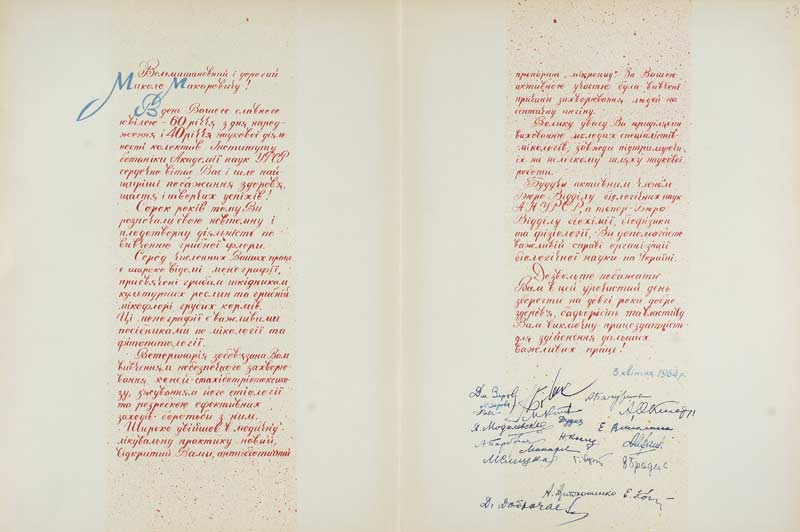 Вельмишановний і дорогий
Миколо Макаровичу!
В день Вашого славного
ювілею - 60 річчя з дня народ-
ження і 40 річчя наукової діяль-
ності колектив Інституту
ботаніки Академії наук УРСР
сердечно вітає Вас і шле най-
щиріші побажання здоров'я,
щастя і творчих успіхів!
Сорок років тому Ви
розпочали свою невтомну і
плодотворну діяльність по
вивченню грибної флори.
Серед численних Ваших праць
є широко відомі монографії,
присвячені грибам шкідникам
культурних рослин та грибній
мікофлорі грубих кормів.
Ці монографії є важливими
посібниками по мікології та
фітопатології.
Ветеринарія зобов'язана Вам
вивченням небезпечного захворю-
вання коней-стахіботріотоксико-
зу, з'ясуванням його етіології
та розробкою ефективних
заходів боротьби з ним.
Широко увійшов в медичну
лікувальну практику новий,
відкритий Вами, антибіотичний
33
препарат "мікроцид". За Вашою
активною участю були вивчені
причини захворювання людей на
септичну ангіну.
Велику увагу Ви приділяєте
вихованню молодих спеціалістів-
мікологів, завжди підтримуючи
їх на нелегкому шляху наукової
роботи.
Будучи активним членом
Бюро Відділу біологічних наук
АН УРСР, а тепер-Бюро
Відділу біохімії, біофізики
та фізіології, Ви допомагаєте
важливій справі організації
біологічної науки на Україні.
Дозвольте побажати
Вам в цей урочистий день
зберегти на довгі роки добре
здоров'я, бадьорість та властиву
Вам виключну працездатність
для здійснення дальших
важливих праць!
3 квітня 1964 р.
Дм. Зеров